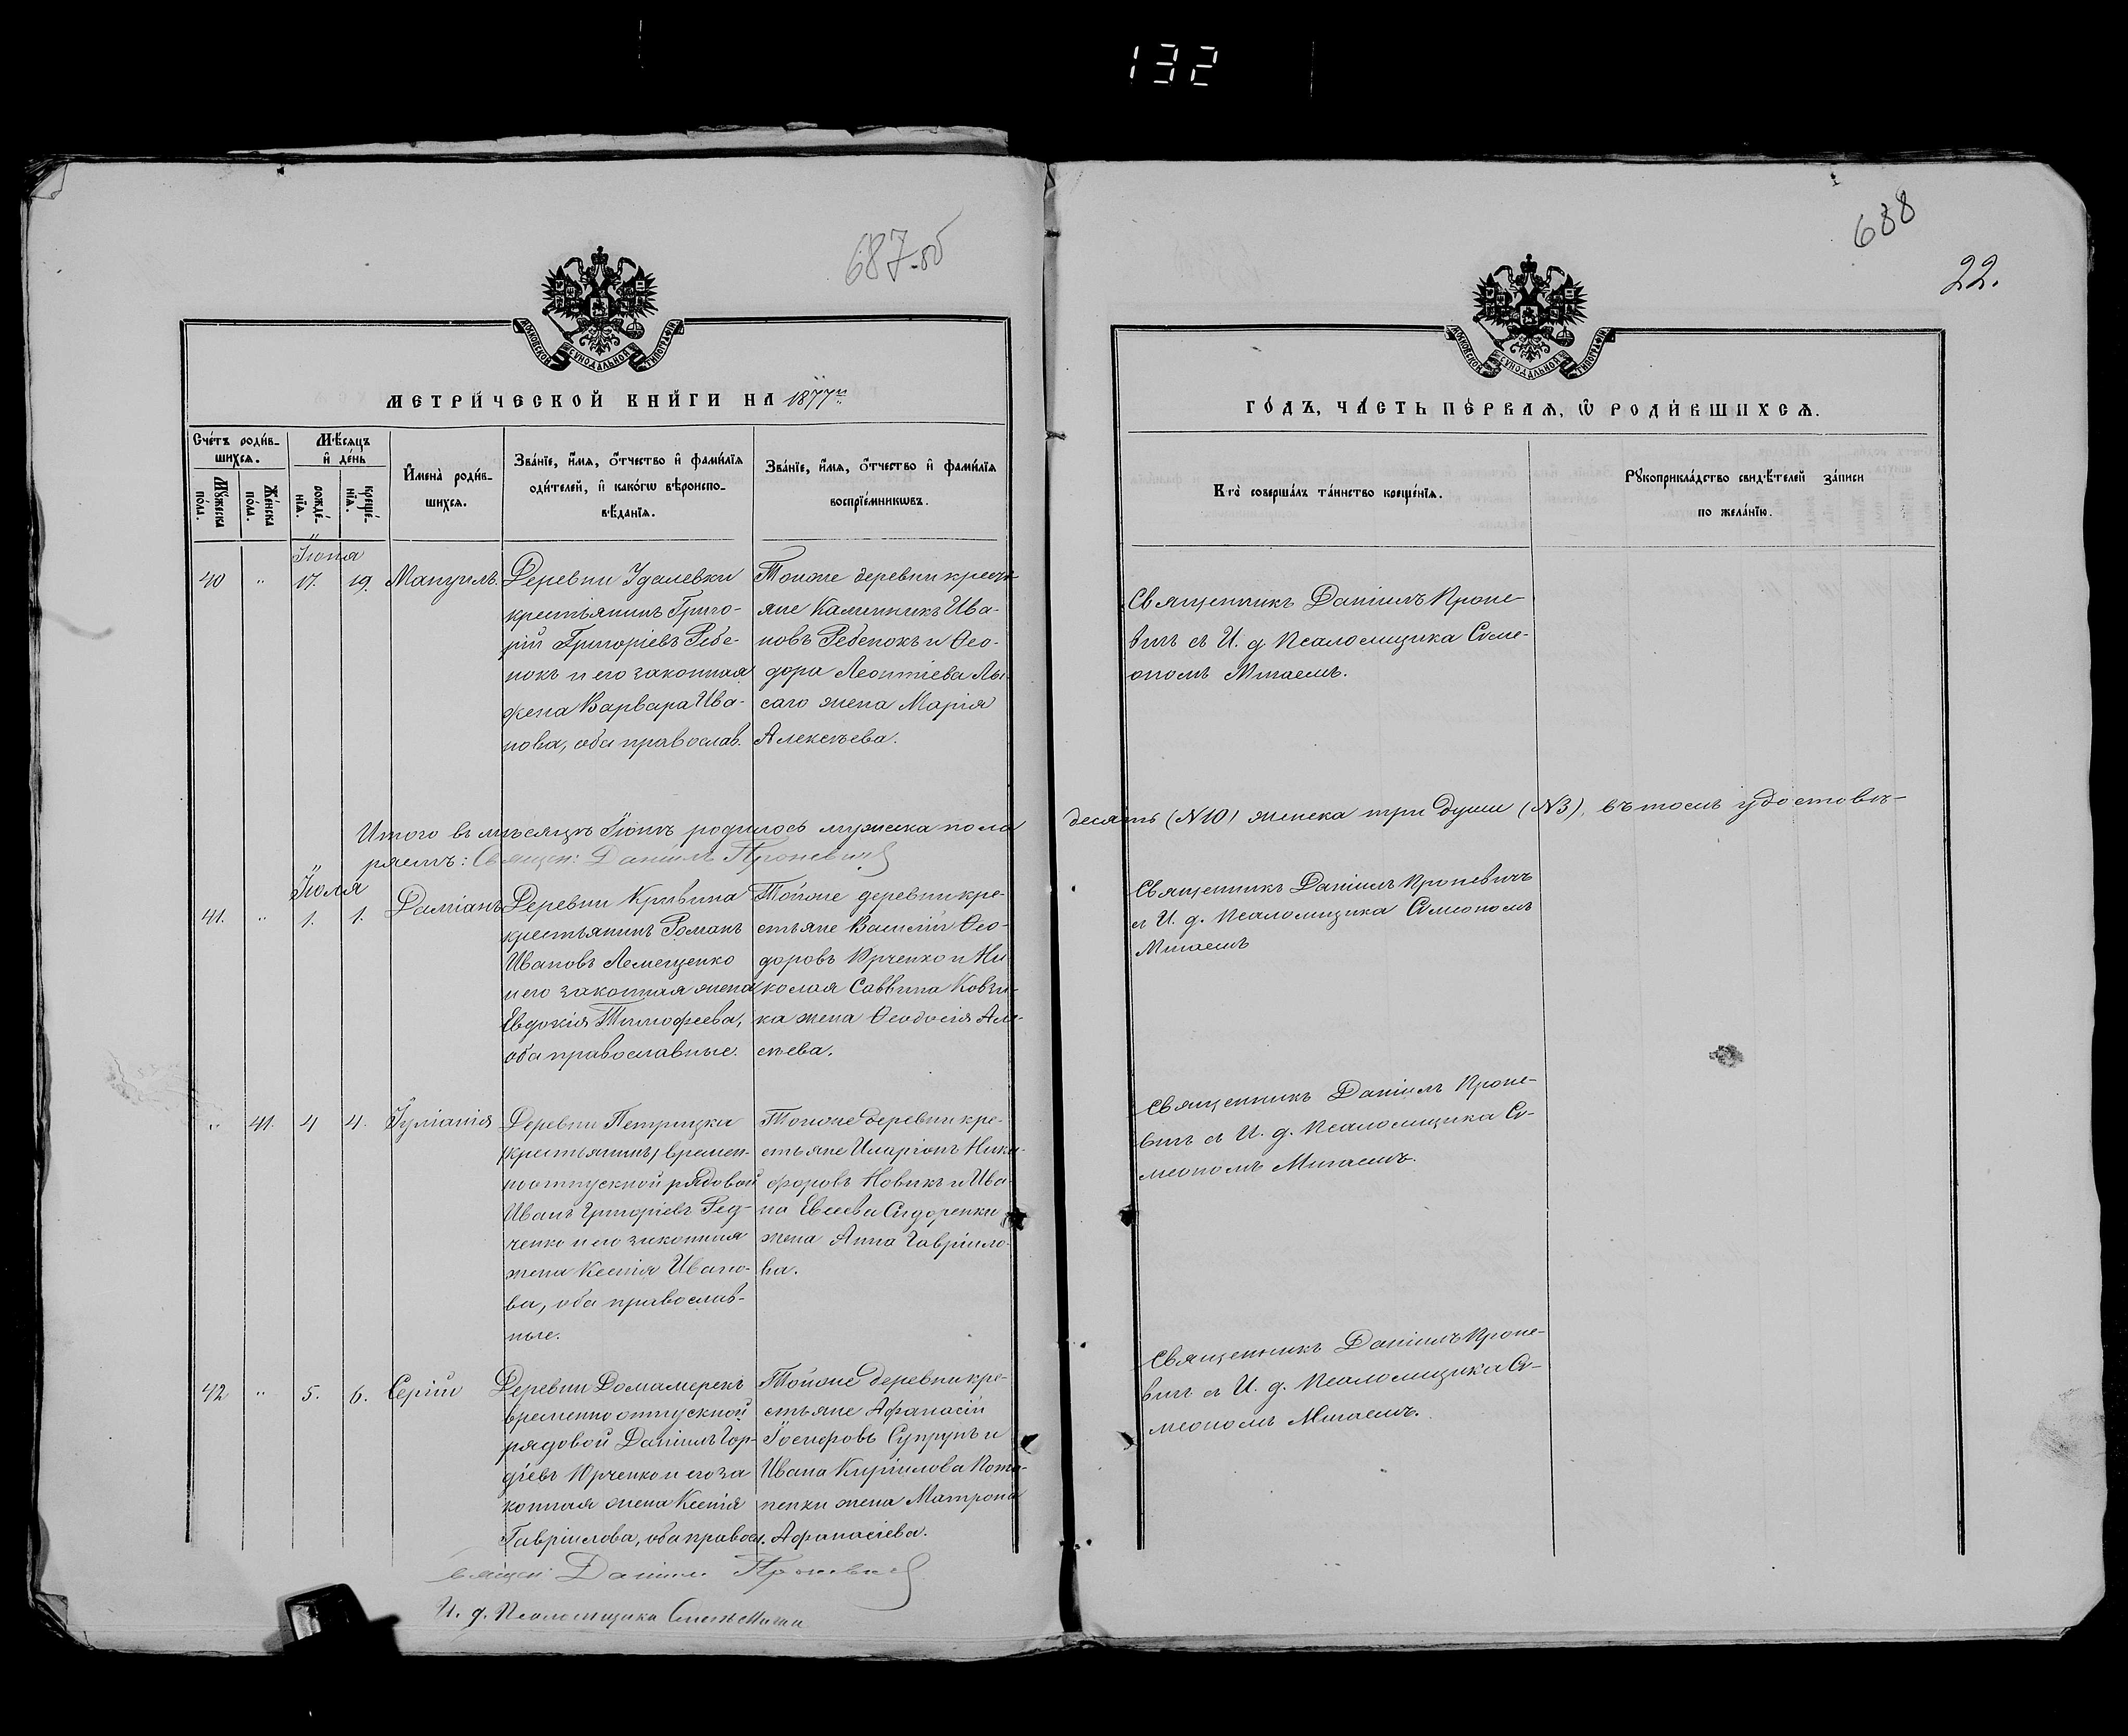 132
687 об
688
22.
МОСКОВСКОЙ СѴНОДАЛЬНОЙ ТИПОГРАФІИ
МОСКОВСКОЙ СѴНОДАЛЬНОЙ ТИПОГРАФІИ
МЕТРИ́ЧЕСКОЙ КНИ́ГИ НА 1877й
ГО́ДЪ, ЧА́СТЬ ПЕ́РВАѦ, Ѡ҆ РОДИ́ВШИХСѦ.
Сче́тъ роди́в-
шихсѧ.
Мѣ́сѧцъ
и҆ де́нь
И҆мена̀ роди́в-
шихсѧ.
Зва́нїе, и҆́мѧ, ѻ҆́тчество и҆ фами́лїѧ
оди́телей, и҆ како́гѡ вѣроиспо-
вѣ́данїѧ.
Зва́нїе, и҆́мѧ, ѻ҆́тчество и҆ фами́лїѧ
воспрїе́мникѡвъ.
Мꙋ́жеска
по́ла.
Же́нска
по́ла.
рожде́-
нїѧ.
креще́-
нїѧ.
Кто̀ соверша́лъ та́инство креще́нїѧ.
Рꙋкоприкла́дство свидѣ́телей за́писи
по жела́нїю.
Іюня
40 " 17. 19. Мануилъ
Деревни Удалевки
крестьянинъ Григо-
рій Григоріевъ Ребе-
нокъ и его законная
жена Варвара Ива-
нова, оба православ.
Тойже деревни кресть-
яне Каллиникъ Ива-
новъ Ребенокъ и Ѳео-
дора Леонтіева Лы-
саго жена Марія
Алексѣева.
Священникъ Даніилъ Проне-
вичъ съ И. д. Псаломщика Симе-
ономъ Мигаемъ.
Итого въ мѣсяцѣ Іюнѣ родилось мужеска пола десять (№10) женска три души (№3), въ томъ удостовѣ-
ряемъ: Священ: Даніилъ Проневичъ
Іюля
41. " 1. 1. Даміанъ
Деревни Кривина
крестьянинъ Романъ
Ивановъ Лемещенко
и его законная жена
Евдокія Тимофеева,
оба православные.
Тойже деревни кре-
стьяне Василій Ѳео-
доровъ Юрченко и Ни-
колая Саввина Ковзи-
ка жена Ѳеодосія Але-
ѣева.
Священникъ Даніилъ Проневичъ
съ И. д. Псаломщика Симеономъ
Мигаемъ
" 41. 4 4. Іуліанія
Деревни Петрицки
(крестьянинъ) времен-
ноотпускной рядовой
Иванъ Григоріевъ Ред-
ченко и его законная
жена Ксенія Ивано-
ва, оба православ-
ные.
Тойже деревни кре-
стьяне Иларіонъ Ники-
форовъ Новикъ и Ива-
на Евсеева Сидоренки
жена Анна Гавріило-
ва.
Священникъ Даніилъ Проне-
вичъ съ И. д. Псаломщика Си-
меономъ Мигаемъ.
42 " 5. 6. Сергій
Деревни Домамерекъ
временно отпускной
рядовой Даніилъ Гор-
діевъ Юрченко и его за
конная жена Ксенія
Гавріилова, оба правосл.
Тойже деревни кре-
стьяне Афанасій
Іосифовъ Супрунъ и
Ивана Кирилова Пота-
пенки жена Матрона
Афанасіева.
Священникъ Даніилъ Проне-
вичъ съ И. д. Псаломщика Си-
меономъ Мигаемъ.
Священ: Даніилъ Проневичъ
И. д. Псаломщика Симеонъ Мигай